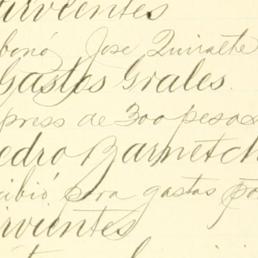 irvientes
bonó Jose Quirnete
Gastos Grales.
press de 300 pesos
edro Barnetch
cibió para gastos po
irvientes